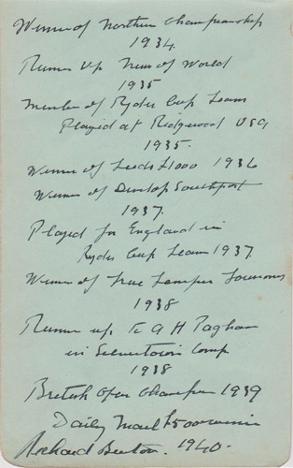 Winner of Northern Championship
1934
Runner Up News of World
1935
Member of Ryder Cup Team
Played at Ridgewood USA
1935.
Winner of Leeds £1000 1936
Winner of Dunlop Southport
1937.
Played for England in
Ryder Cup Team 1937
Winner of True Temper Tourny
1938
Runner up to A H Padgham
in Silvertown Comp
1938
British Open Champion 1939
Daily Mail £500 winner
Richard Burton. 1940.